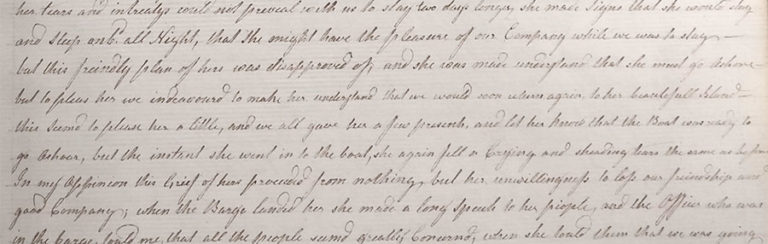 her tears and intreatys could not preveal with us to stay two days longer, she made Signs that she would stay
and Sleep onb.d all Night, that she might have the pleasure of our Company while we was to stay —
but this freindly plan of hers was disapproved of, and she was made understand that she must go Ashore —
but to pleas her we indeavourd to make her understand that we would soon return again to her beautefull Island —
this seemd to please her a little, and we all gave her a few presents, and let her know that the Boat was ready to
go Ashoar, but the instant she went in to the boat, she again fell a Crying and sheading tears the same as before
In my Oppinion this Grief of hers proceeded from nothing, but her unwillingness to loss our friendship and
good Company; when the Barge landed her she made a long Speech to her people, and the Officer who was
in the barge, tould me, that all the people seemd greatly Concernd, when she tould them that we was going